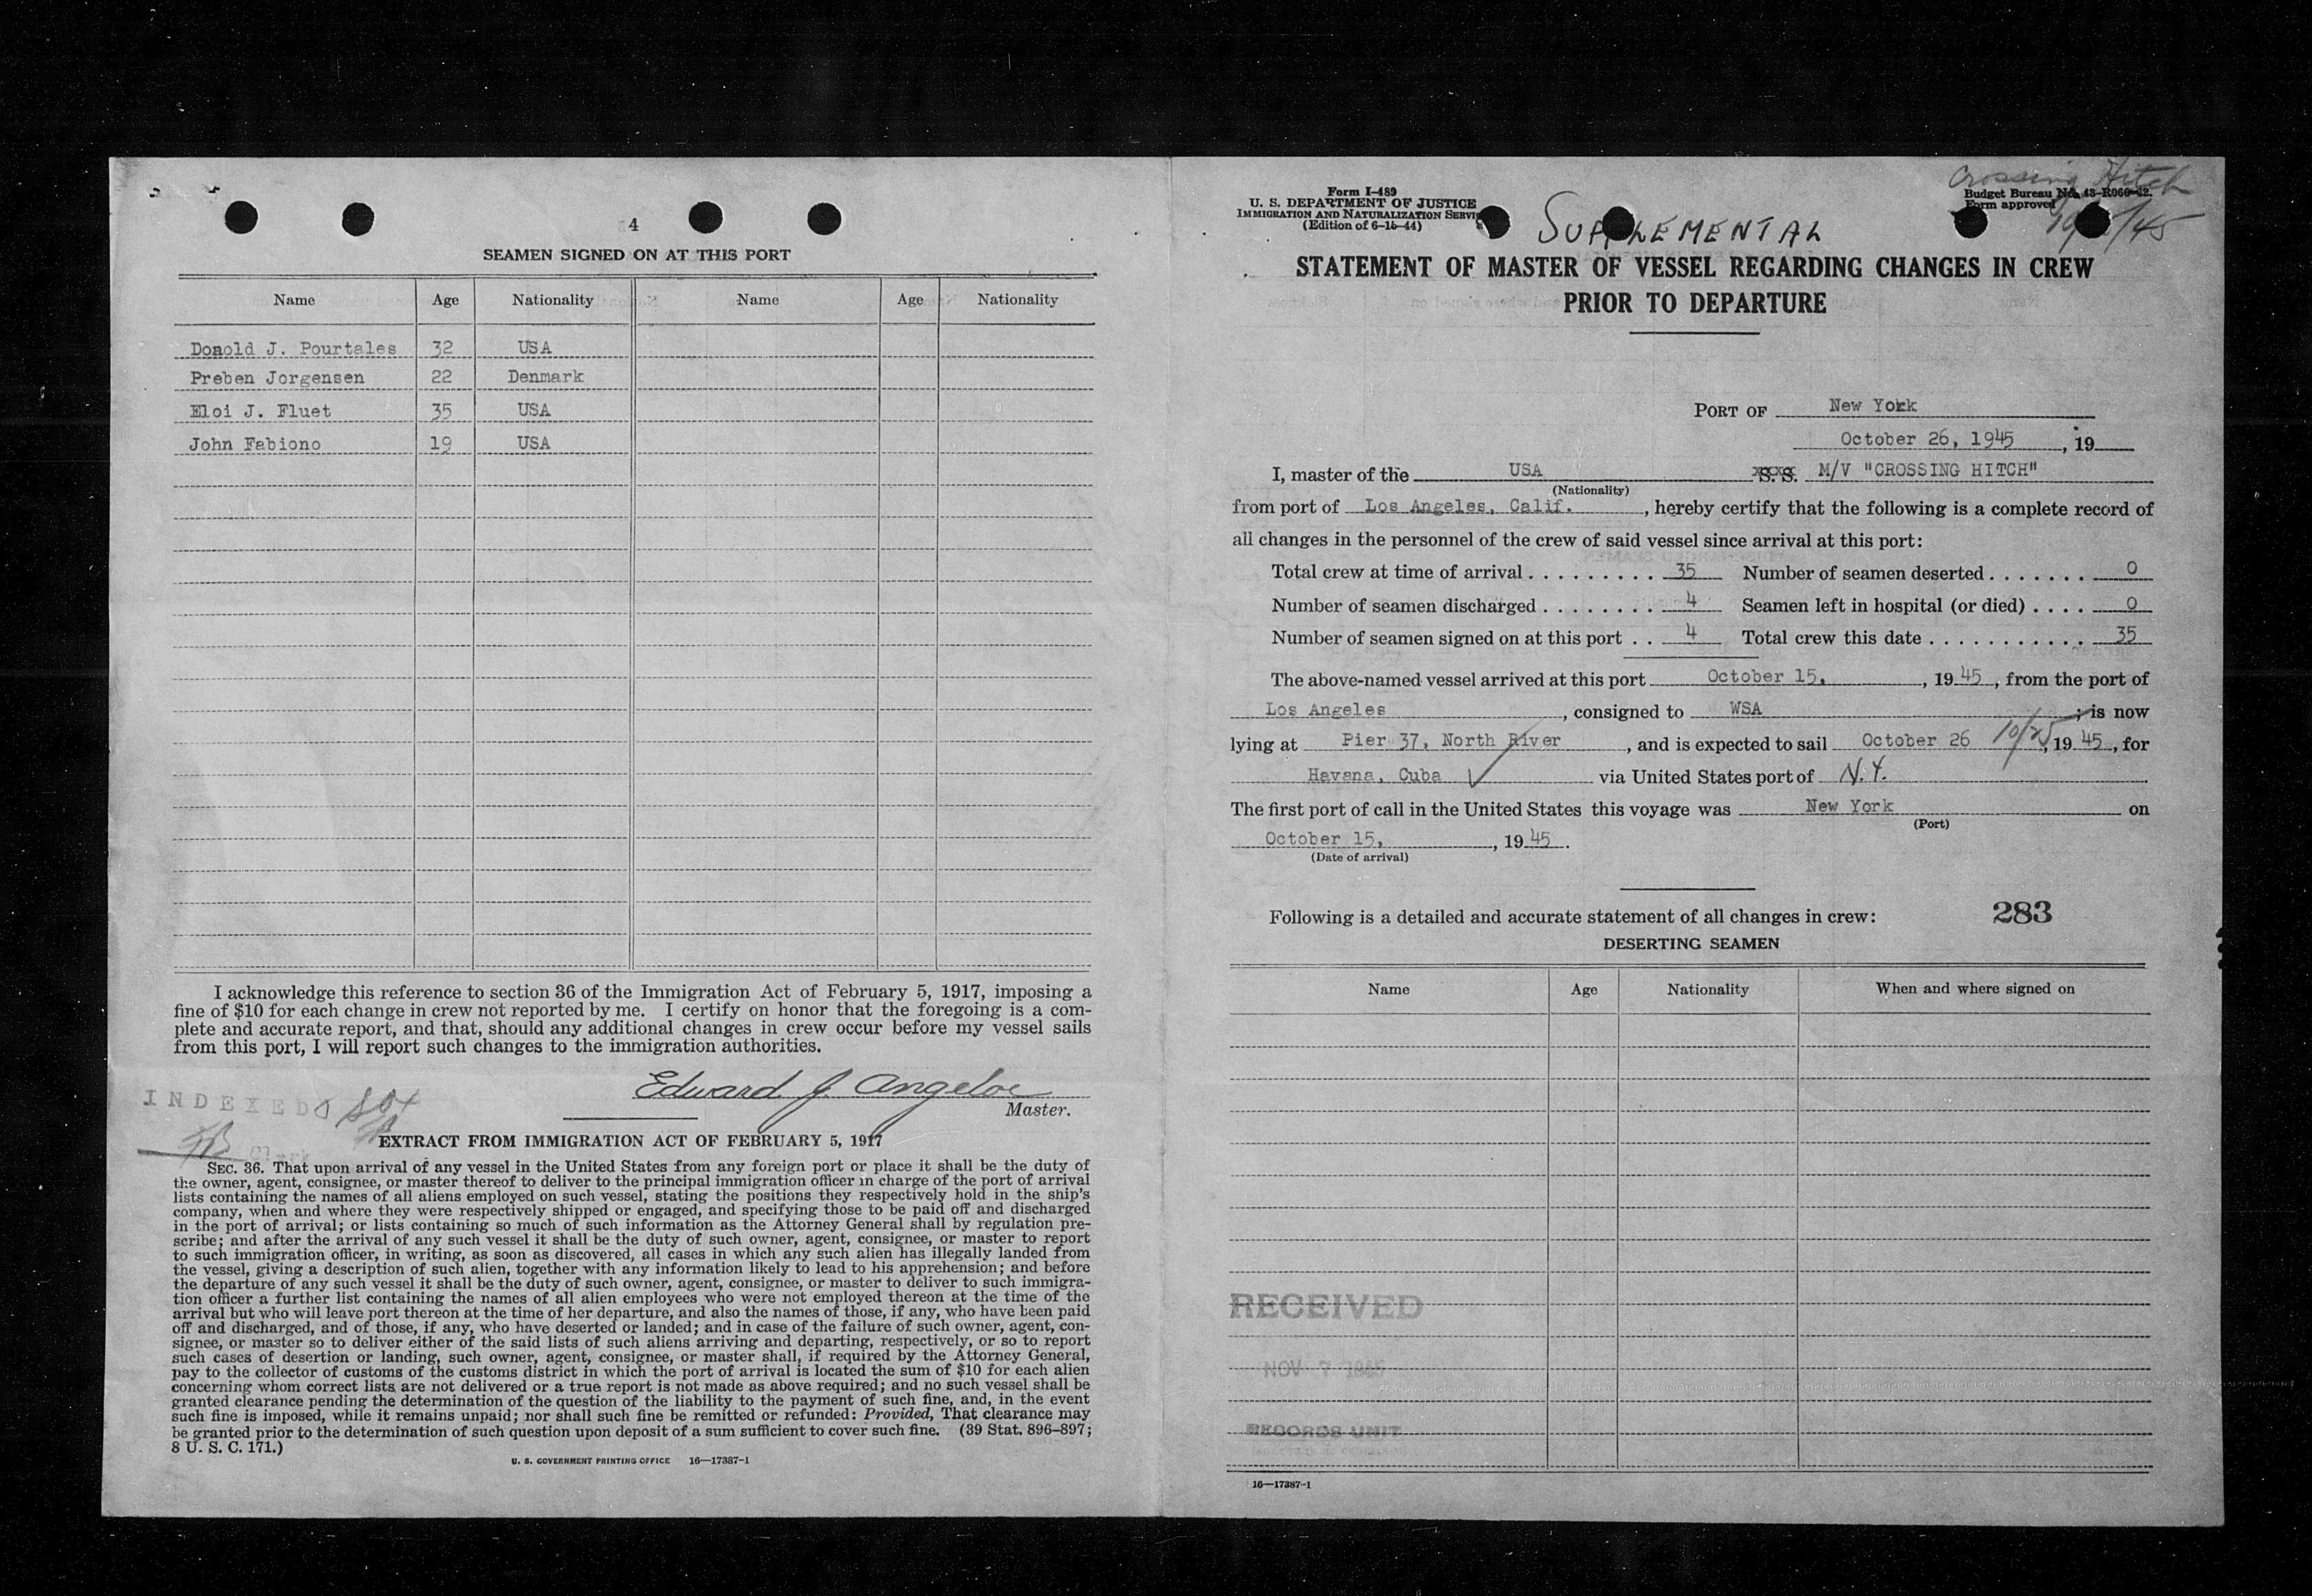 4
SEAMEN SIGNED ON AT THIS PORT
Name Age Nationality Name Age Nationality
Donald J. Pourtales 32 USA
Preben Jorgensen 22 Denmark
Eloi J. Fluet 35 USA
John Fabiono 19 USA
I acknowledge this reference to section 36 of the Immigration Act of February 5, 1917, imposing a
fine of $10 for each change in crew not reported by me. I certify on honor that the foregoing is a com-
plete and accurate report, and that, should any additional changes in crew occur before my vessel sails
from this port, I will report such changes to the immigration authorities.
Edward J. Angeloe
Master.
INDEXED
Clerk
EXTRACT FROM IMMIGRATION ACT OF FEBRUARY 5, 1917
SEC. 36. That upon arrival of any vessel in the United States from any foreign port or place it shall be the duty of
the owner, agent, consignee, or master thereof to deliver to the principal immigration officer in charge of the port of arrival
lists containing the names of all aliens employed on such vessel, stating the positions they respectively hold in the ship's
company, when and where they were respectively shipped or engaged, and specifying those to be paid off and discharged
in the port of arrival; or lists containing so much of such information as the Attorney General shall by regulation pre-
scribe; and after the arrival of any such vessel it shall be the duty of such owner, agent, consignee, or master to report
to such immigration officer, in writing, as soon as discovered, all cases in which any such alien has illegally landed from
the vessel, giving a description of such alien, together with any information likely to lead to his apprehension; and before
the departure of any such vessel it shall be the duty of such owner, agent, consignee, or master to deliver to such immigra-
tion officer a further list containing the names of all alien employees who were not employed thereon at the time of the
arrival but who will leave port thereon at the time of her departure, and also the names of those, if any, who have been paid
off and discharged, and of those, if any, who have deserted or landed; and in case of the failure of such owner, agent, con-
signee, or master so to deliver either of the said lists of such aliens arriving and departing, respectively, or so to report
such cases of desertion or landing, such owner, agent, consignee, or master shall, if required by the Attorney General,
pay to the collector of customs of the customs district in which the port of arrival is located the sum of $10 for each alien
concerning whom correct lists are not delivered or a true report is not made as above required; and no such vessel shall be
granted clearance pending the determination of the question of the liability to the payment of such fine, and, in the event
such fine is imposed, while it remains unpaid; nor shall such fine be remitted or refunded: Provided, That clearance may
be granted prior to the determination of such question upon deposit of a sum sufficient to cover such fine. (39 Stat. 896–897;
8 U. S. C. 171.)
U. S. GOVERNMENT PRINTING OFFICE 16—17387-1
Crossing Hitch
Form I-489
U. S. DEPARTMENT OF JUSTICE
IMMIGRATION AND NATURALIZATION SERVICE
(Edition of 6-15-44)
Budget Bureau No. 43-R066-42.
Form approved
SUPPLEMENTAL
STATEMENT OF MASTER OF VESSEL REGARDING CHANGES IN CREW
PRIOR TO DEPARTURE
PORT OF New York
October 26, 1945, 19
I, master of the USA S.S. M/V "CROSSING HITCH"
(Nationality)
from port of Los Angeles, Calif., hereby certify that the following is a complete record of
all changes in the personnel of the crew of said vessel since arrival at this port:
Total crew at time of arrival 35 Number of seamen deserted 0
Number of seamen discharged 4 Seamen left in hospital (or died) 0
Number of seamen signed on at this port 4 Total crew this date 35
The above-named vessel arrived at this port October 15, , 1945, from the port of
Los Angeles, consigned to WSA; is now
lying at Pier 37, North River, and is expected to sail October 26 10/25, 1945, for
Havana, Cuba via United States port of N.Y.
The first port of call in the United States this voyage was New York on
(Port)
October 15, , 1945.
(Date of arrival)
Following is a detailed and accurate statement of all changes in crew: 283
DESERTING SEAMEN
Name Age Nationality When and where signed on
RECEIVED
NOV 7 1945
RECORDS UNIT
16—17387-1